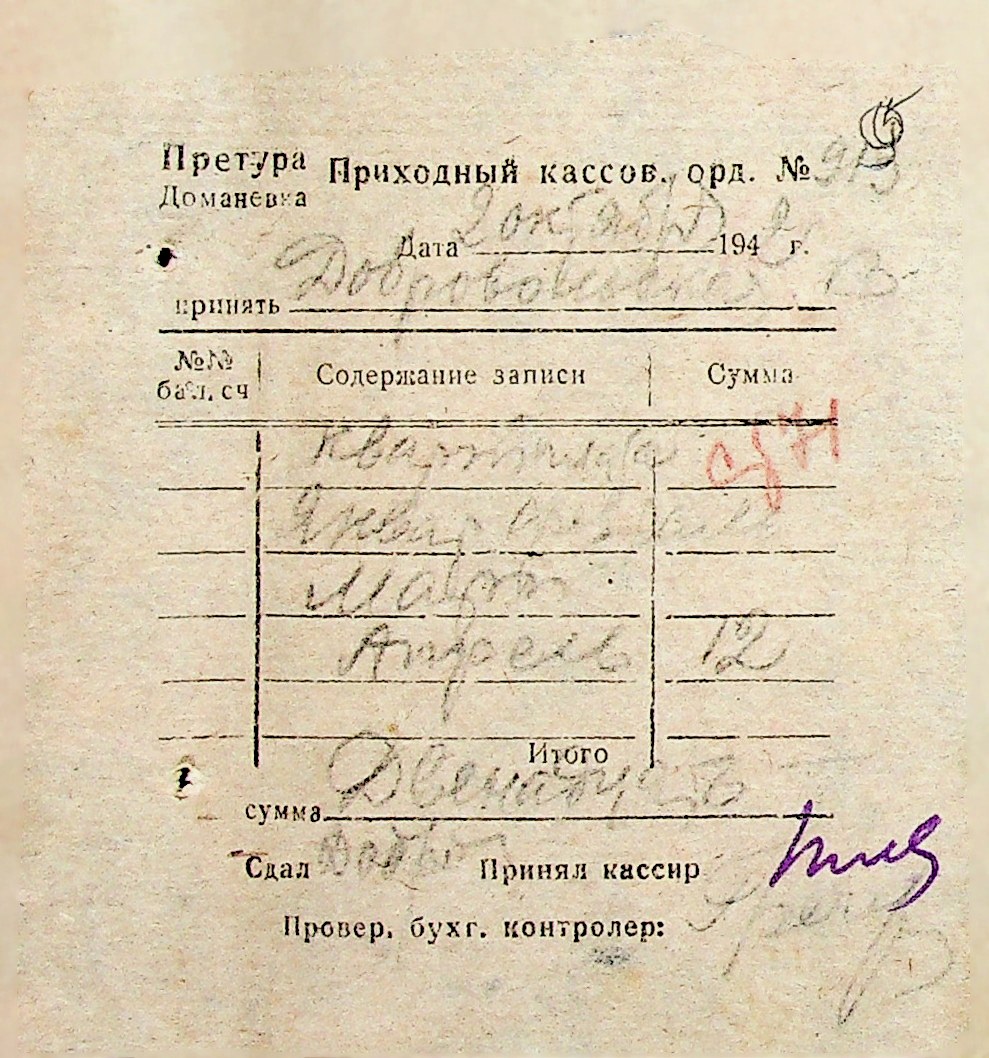 Претура Приходный кассов. орд. № 913
Доманевка
Дата 2 октября 1942 г.
принять Добровольская В
№№ бал. сч Содержание записи Сумма
Квартплата
Январ Февраль
Март
Апрель 12
Итого
сумма Двенадцать
Сдал Принял кассир
Провер. бухг. контролер: